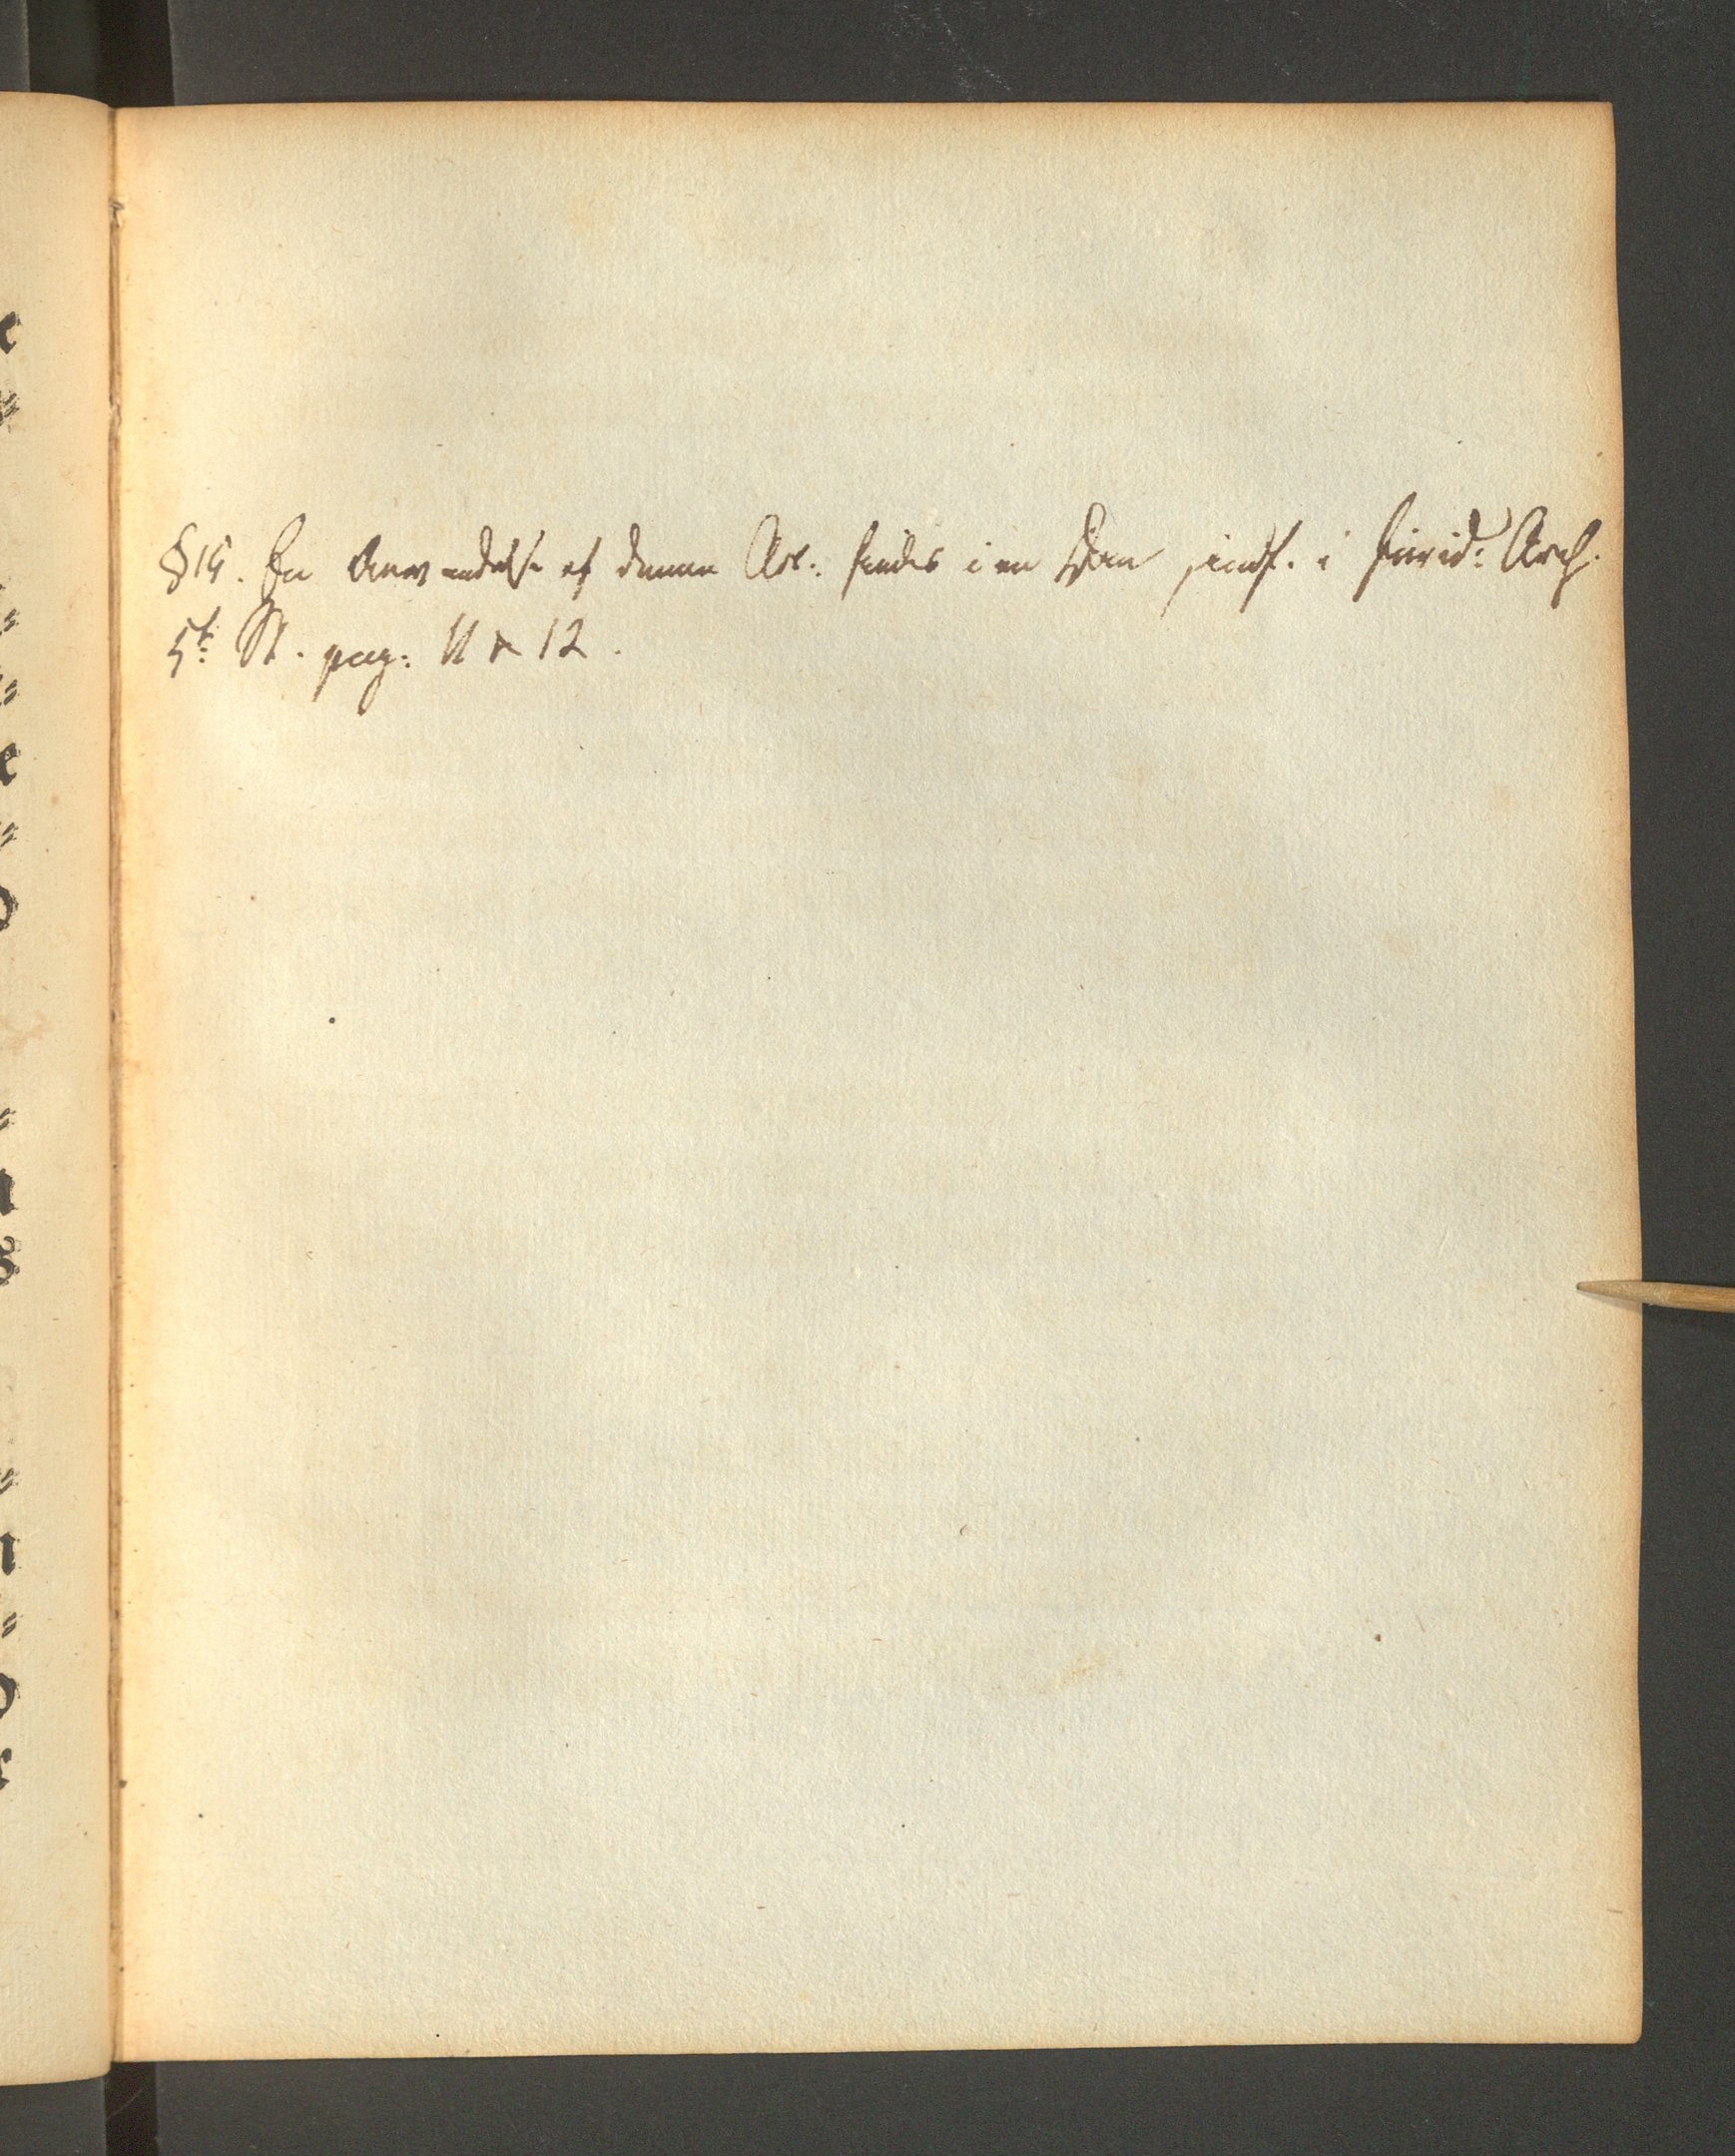 § 14. En Anvendelse af denne Art: findes i en Dom, indf. i Jurid: Arch.
5te St. pag: 11 & 12.